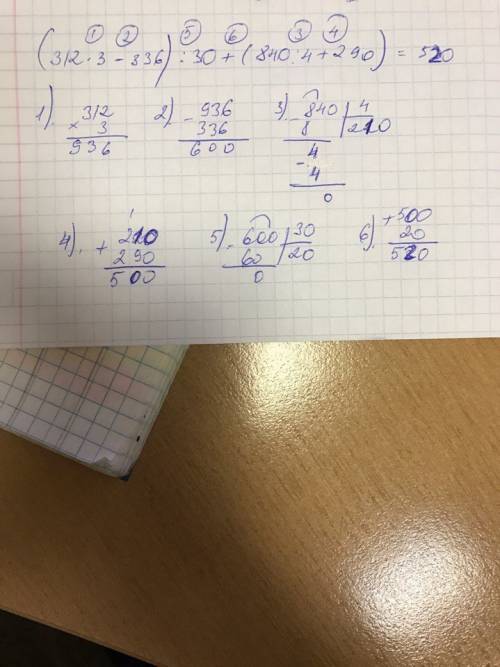 ① ② ⑤ ⑥ ③ ④
(312·3-336):30+(840:4+290)=520
1). 312 2) -936 3) -840 | 4
× 3 336 8 | 210
936 600 4
- 4
0
1 +500
4). + 210 5) -600 | 30 6). 20
290 60 | 20 520
500 0